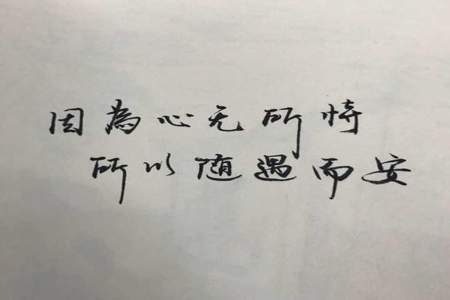 因為心无所恃
所以随遇而安